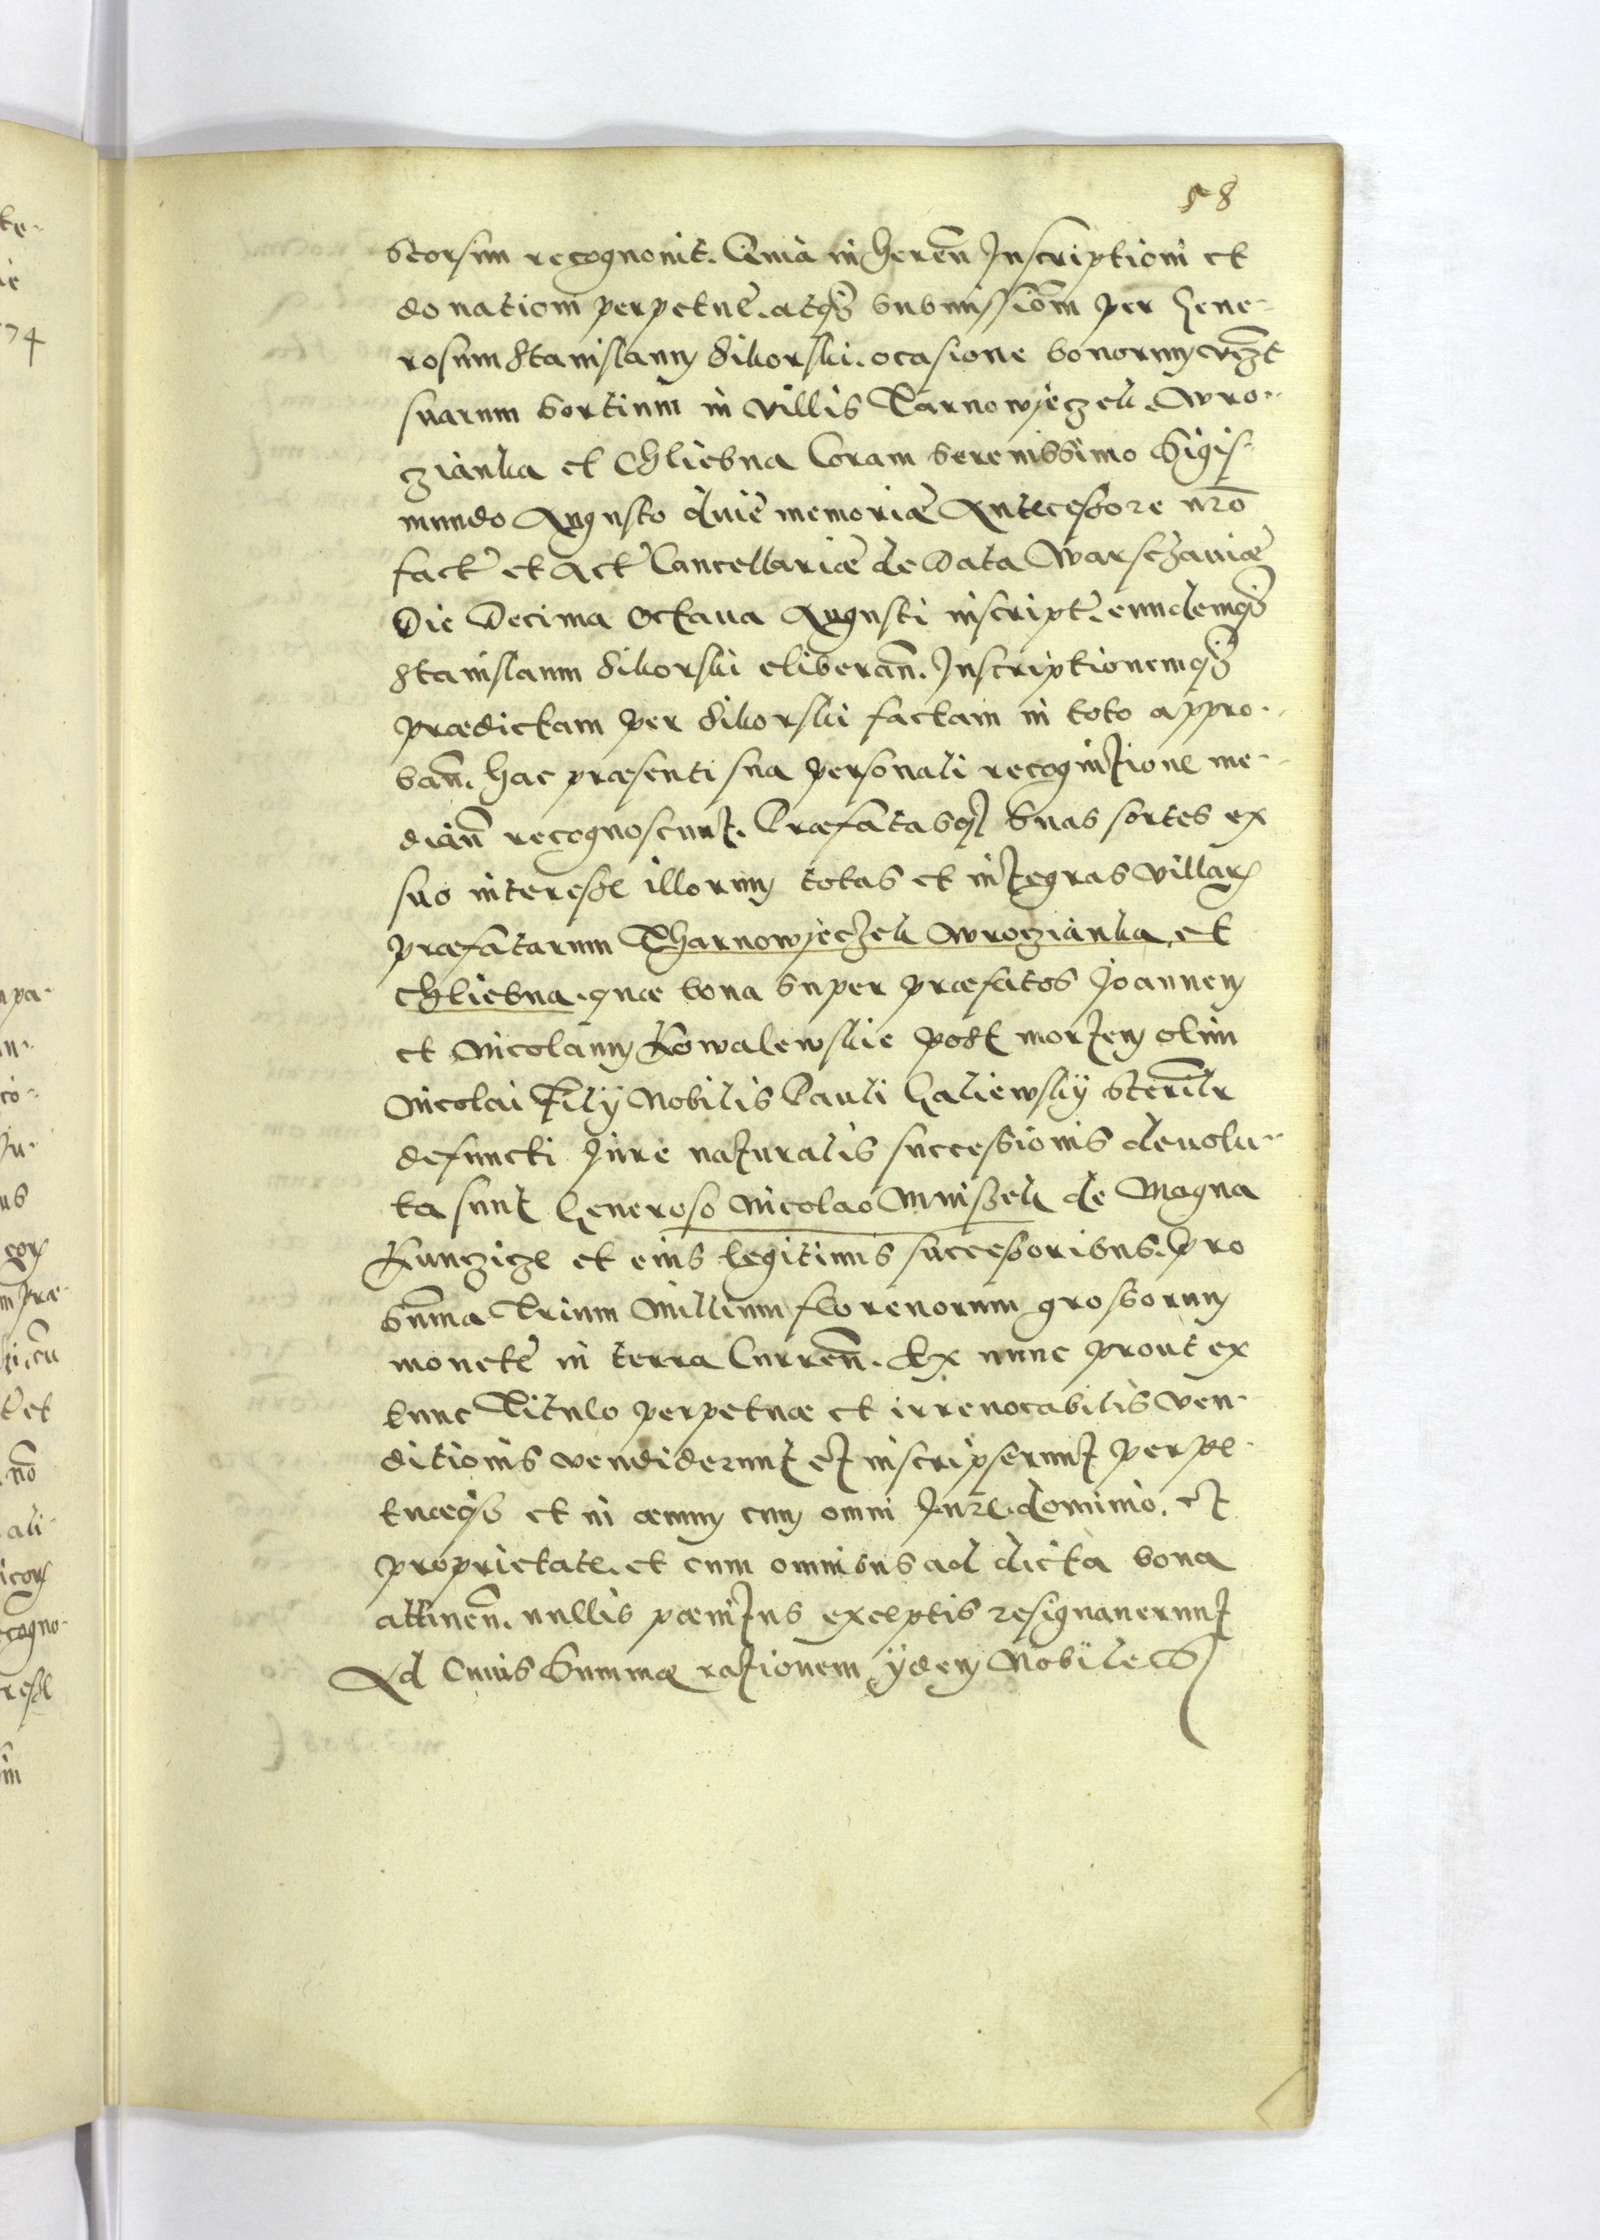 58
Seorsim recognouit. Quia inheren̄ Inscriptioni et
donationi perpetuę. atq3 submissiōni per Gene-
rosum Stanislaum Sikorski. ocasione bonorum viz̄t
suarum Sortium in villis Tarnowyeczek. Wro-
czianka et Chliebna Coram Serenissimo Sigis-
mundo Augusto diuę memoriæ Antecessore nr̄o
factę et Actę Cancellariæ de Data Warschauiæ
Die Decima Octaua Augusti inscriptę. eundemq3
Stanislaum Sikorski eliberan̄. Inscriptionemq3
prædictam per Sikorski factam in toto appro-
ban̄. hac præsenti sua personali recognitione me-
dian̄ recognoscunt. Præfatasq3 Suas sortes ex
suo interesse illorum totas et integras villar
præfatarum Tharnowyeczek Wroczianka et
Chliebna. quæ bona Super præfatos Joannem
et Nicolaum Kowalewskie post mortem olim
Nicolai Filÿ Nobilis Pauli Galiewskÿ Steril̄r
defuncti Jure naturalis successionis deuolu-
ta sunt Generoso Nicolao Mniszek de Magna
Kunczicze et eius legitimis successoribus. Pro
Sum̄a Trium Millium florenorum grossorum
monetę in terra Curren̄. Ex nunc prout ex
tunc Titulo perpetuæ et irreuocabilis Ven-
ditionis vendiderunt et inscripserunt perpe-
tuæq3 et in æuum cum omni Jure. dominio. et
proprietate. et cum omnibus ad dicta bona
attinen̄. nullis pœnitus exceptis resignauerunt
Ad Cuius Summæ rationem ÿdem Nobiles